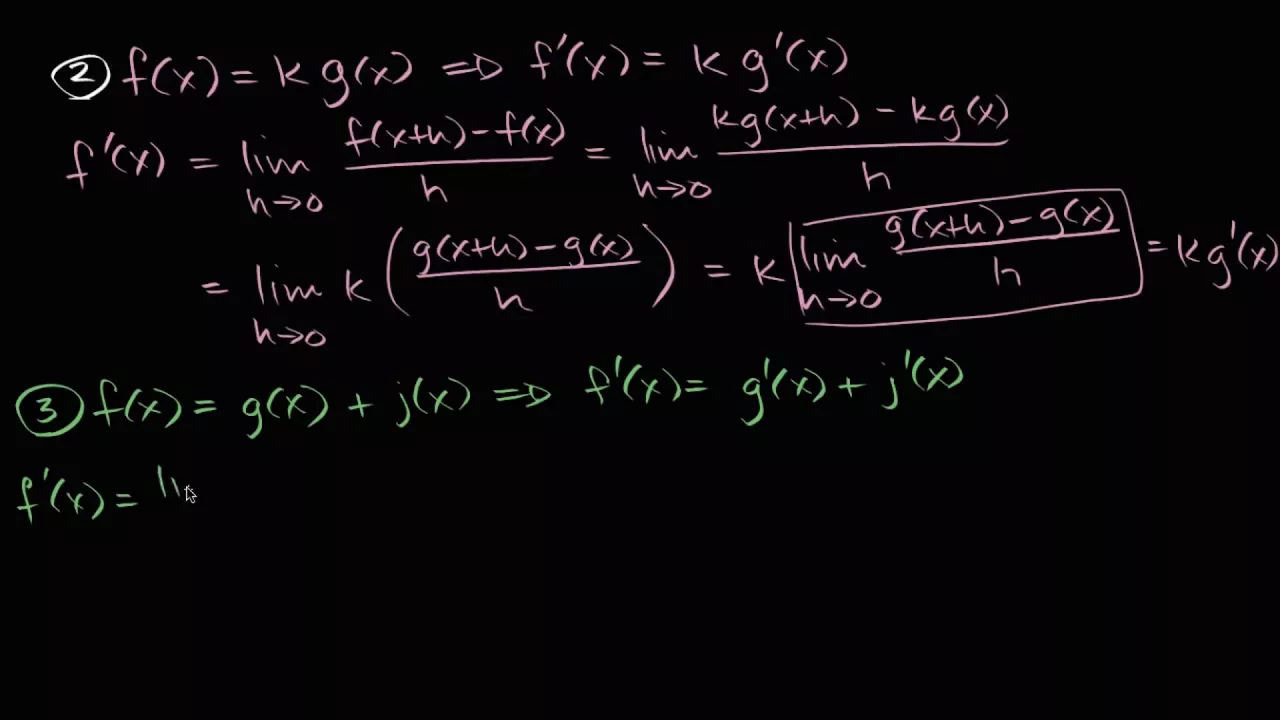 ② f(x) = k g(x) ⇒ f'(x) = k g'(x)
f'(x) = lim h→0 f(x+h) − f(x) / h = lim h→0 kg(x+h) − kg(x) / h
= lim h→0 k ( g(x+h) − g(x) / h ) = k lim h→0 g(x+h) − g(x) / h = k g'(x)
③ f(x) = g(x) + j(x) ⇒ f'(x) = g'(x) + j'(x)
f'(x) = li